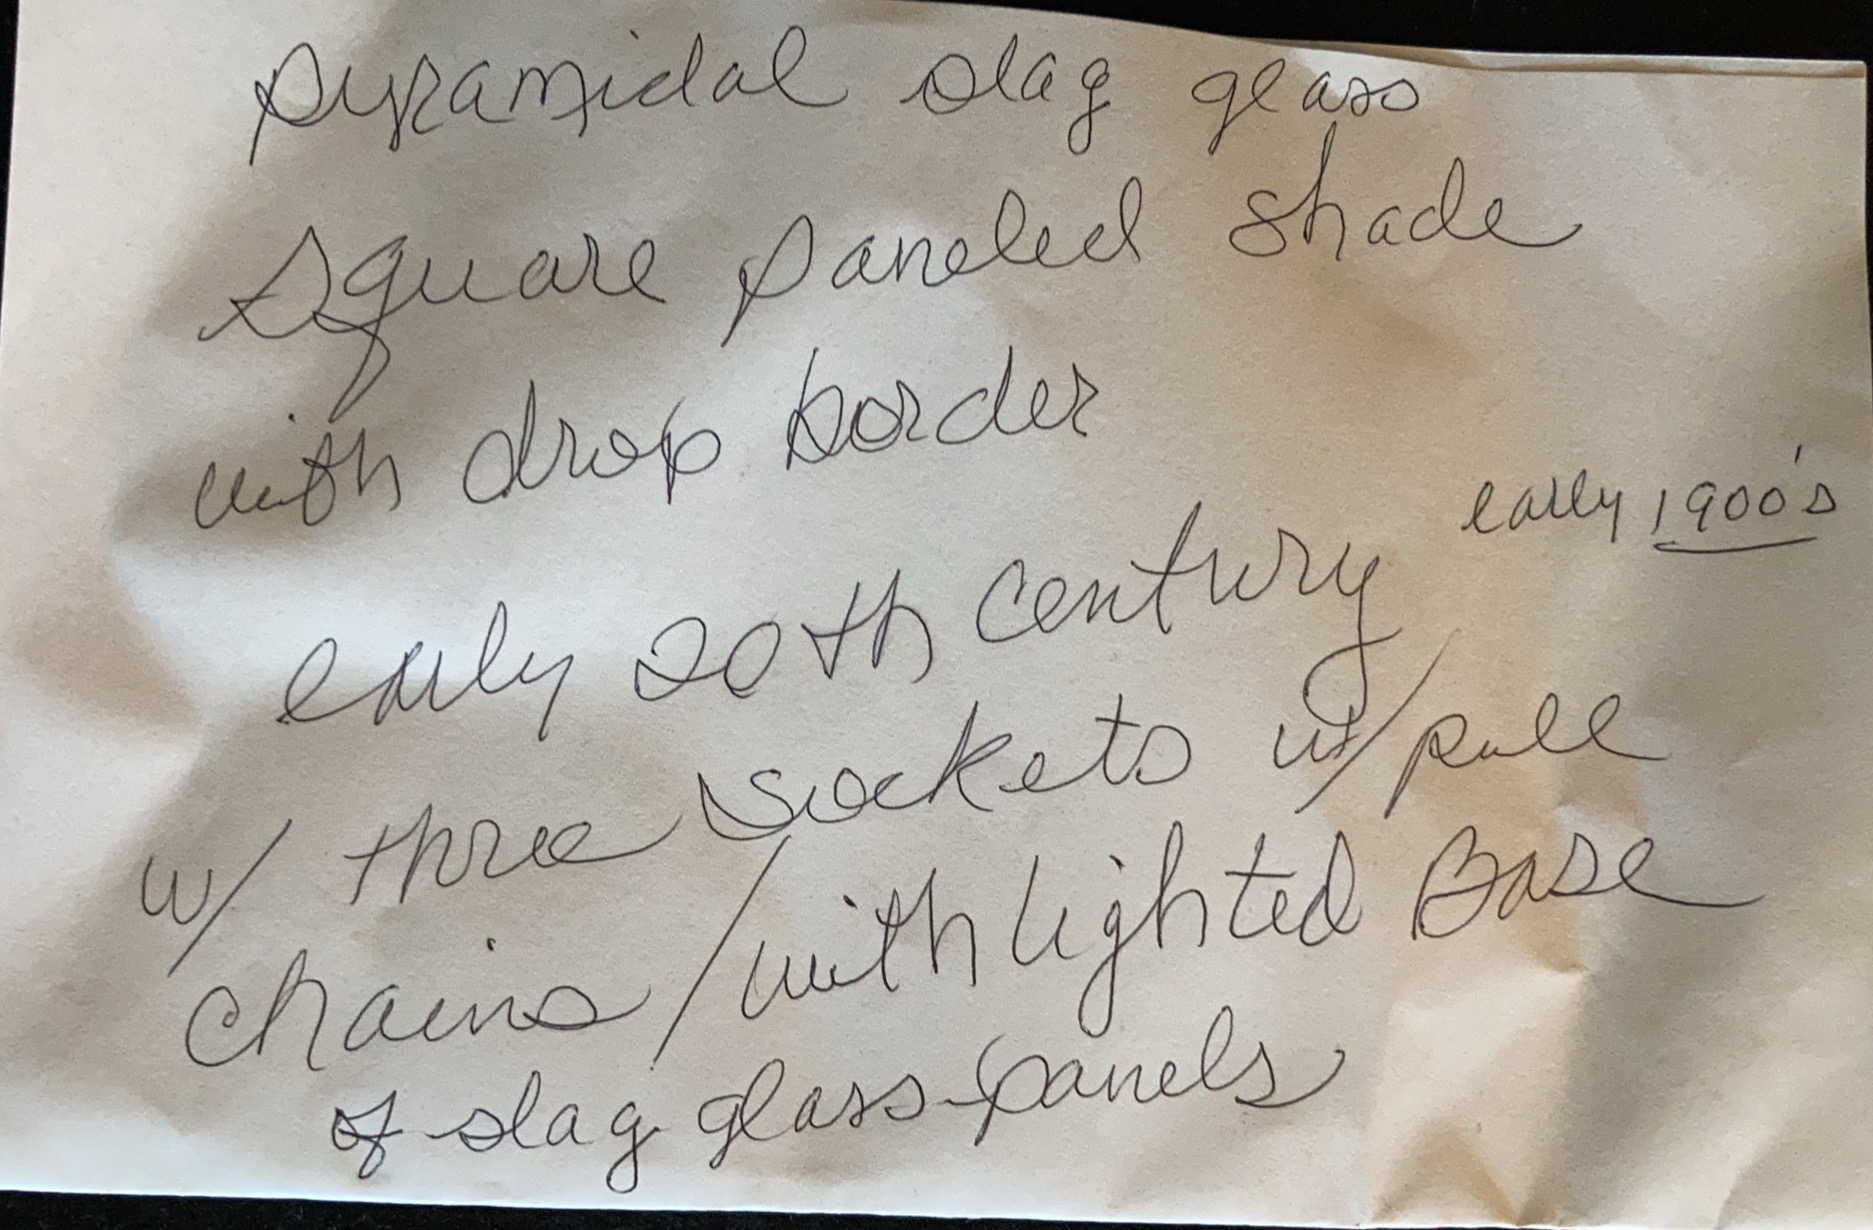 pyramidal slag glass
square paneled shade
with drop border
early 1900's
early 20th century
w/ three sockets w/ pull
chains / with lighted Base
of slag glass panels